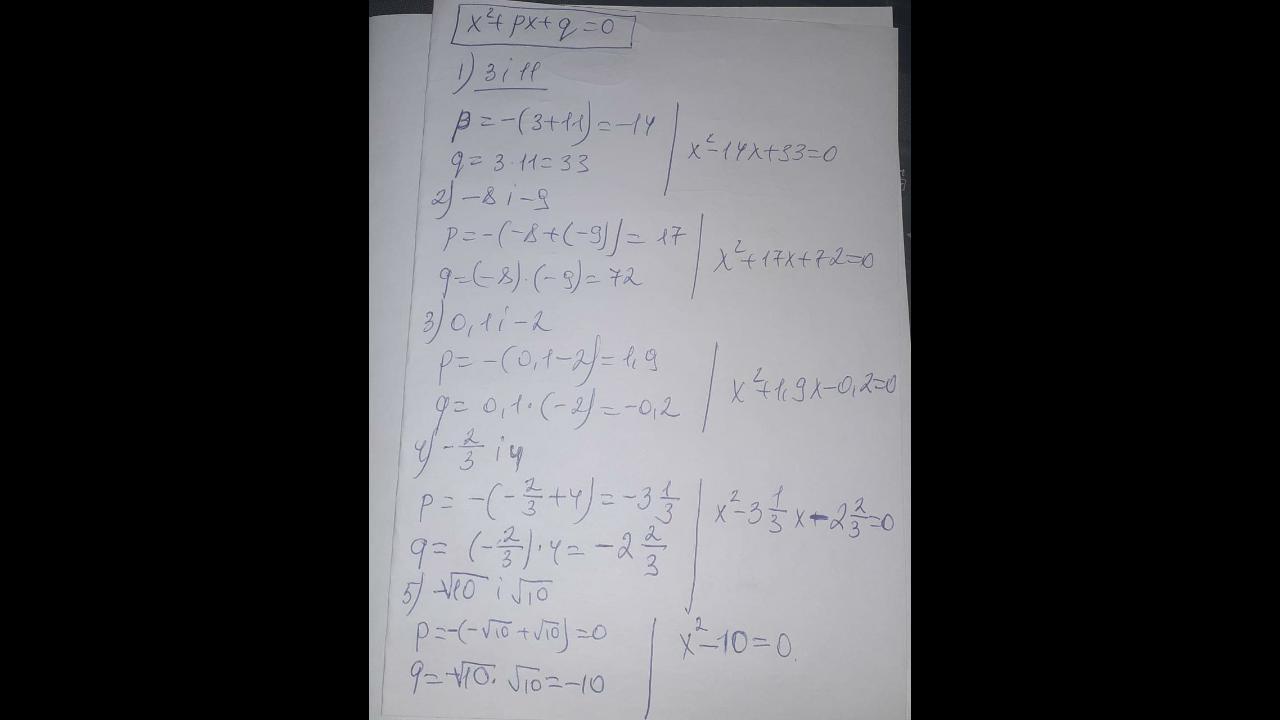 x²+px+q=0
1) 3 i 11
p=-(3+11)=-14
q=3·11=33
x²-14x+33=0
2) -8 i -9
p=-(-8+(-9))=17
q=(-8)·(-9)=72
x²+17x+72=0
3) 0,1 i -2
p=-(0,1-2)=1,9
q=0,1·(-2)=-0,2
x²+1,9x-0,2=0
4) -2/3 i 4
p=-(-2/3+4)=-3 1/3
q=(-2/3)·4=-2 2/3
x²-3 1/3 x-2 2/3=0
5) -√10 i √10
p=-(-√10+√10)=0
q=-√10·√10=-10
x²-10=0.